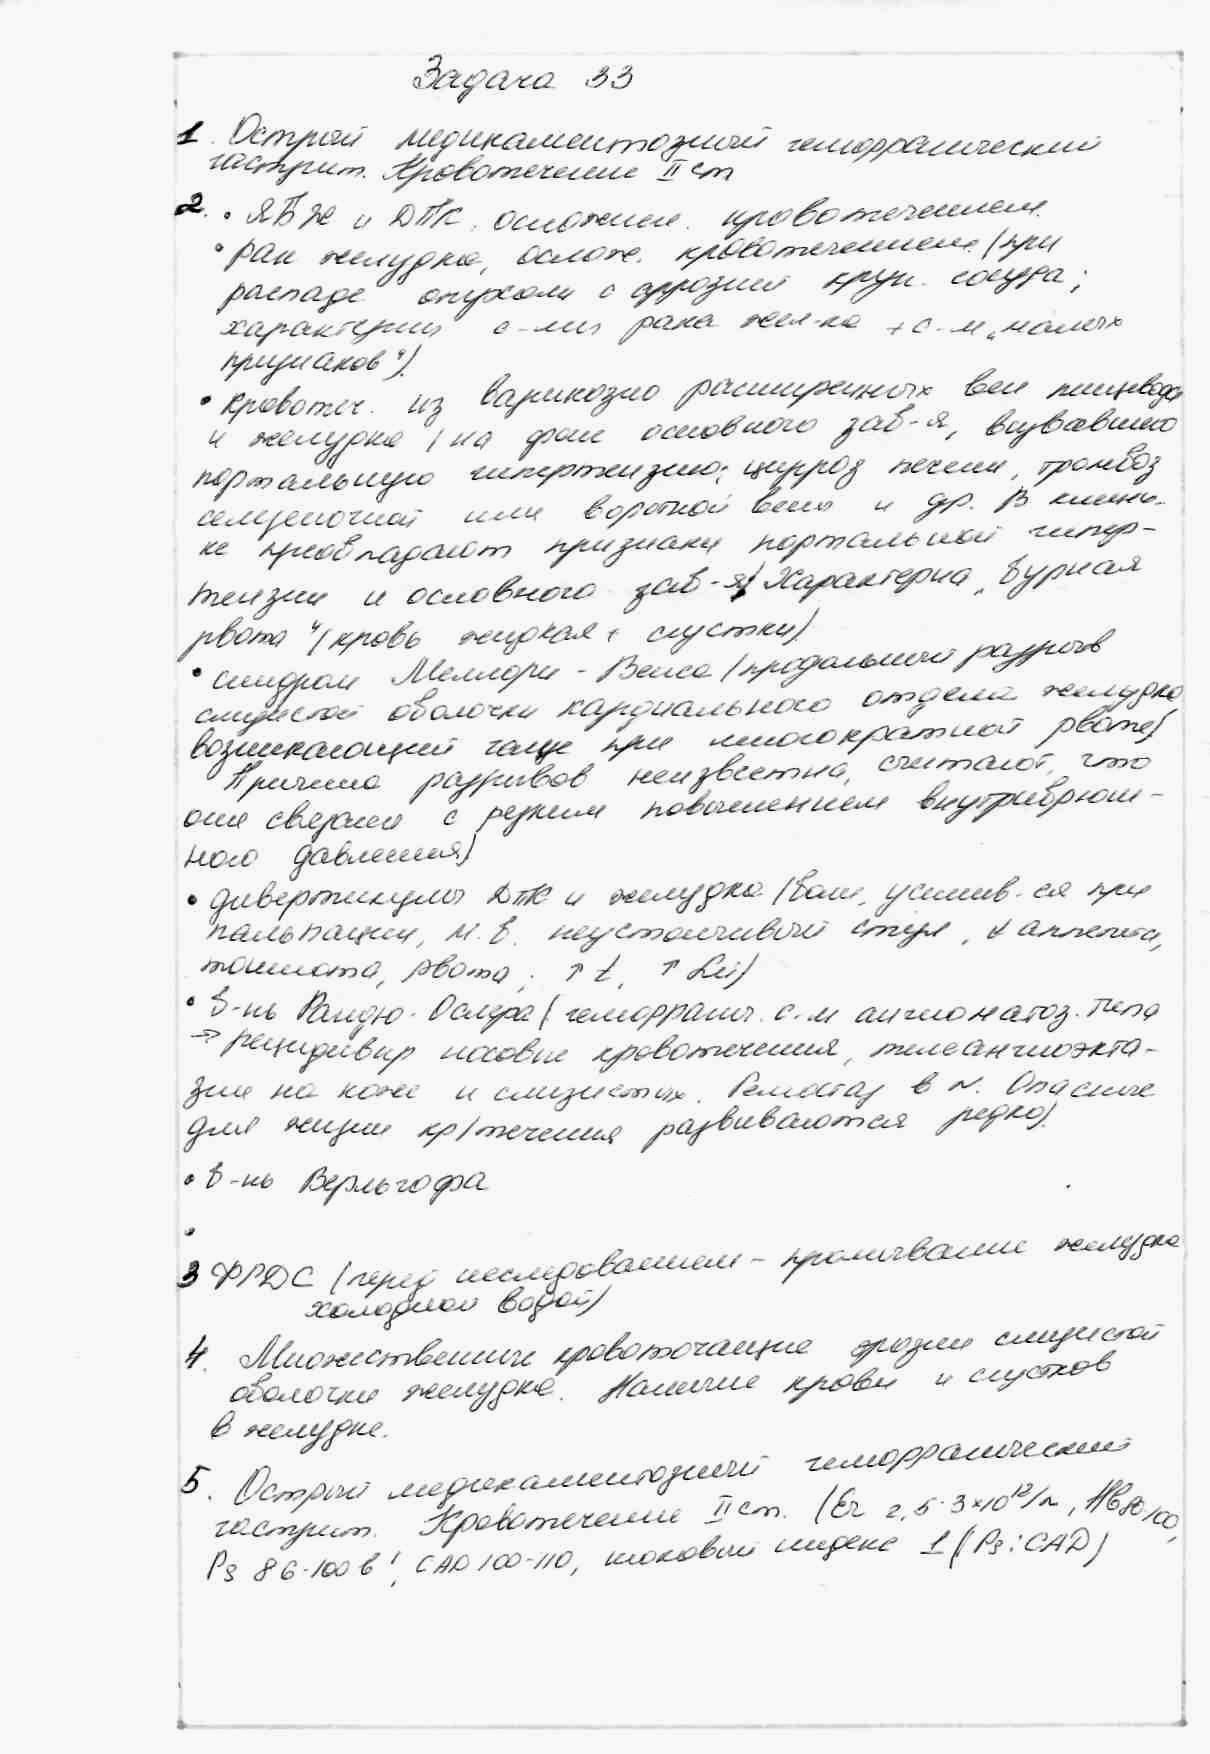 Задача 33
1. Острый медикаментозный геморрагический
гастрит. Кровотечение II ст
2. • ЯБЖ и ДПК, осложнен. кровотечением.
• рак желудка, ослож. кровотечением (при
распаде опухоли с аррозией круп. сосуда;
характерны с-мы рака жел-ка + с-м „малых
признаков“).
• кровотеч. из варикозно расширенных вен пищевода
и желудка (на фоне основного заб-я, вызвавшего
портальную гипертензию: цирроз печени, тромбоз
селезеночной или воротной вены и др. В клини-
ке преобладают признаки портальной гипер-
тензии и основного заб-я) Характерна „бурная
рвота“ (кровь жидкая + сгустки)
• синдром Меллори - Вейса (продольный разрыв
слизистой оболочки кардиального отдела желудка,
возникающий чаще при многократной рвоте)
Причина разрывов неизвестна, считают, что
они связаны с резким повышением внутрибрюш-
ного давления)
• дивертикулы ДПК и желудка (боли, усилив-ся при
пальпации, м.б. неустойчивый стул, ↓ аппетита,
тошнота, рвота; ↑ t, ↑ Lei)
• б-нь Рандю - Ослера (геморрагич. с-м ангиоматоз. типа
→ рецидивир носовые кровотечения, телеангиоэкта-
зии на коже и слизистых. Гемостаз в N. Опасные
для жизни кр/течения развиваются редко).
• б-нь Верльгофа
•
3 ФГДС (перед исследованием - промывание желудка
холодной водой)
4. Множественные кровоточащие эрозии слизистой
оболочки желудка. Наличие крови и сгустков
в желудке.
5. Острый медикаментозный геморрагический
гастрит. Кровотечение II ст. (Er 2,5-3×10¹²/л, Hb 80-100,
Ps 86-100 в ', САД 100-110, шоковый индекс 1 (Ps : САД)